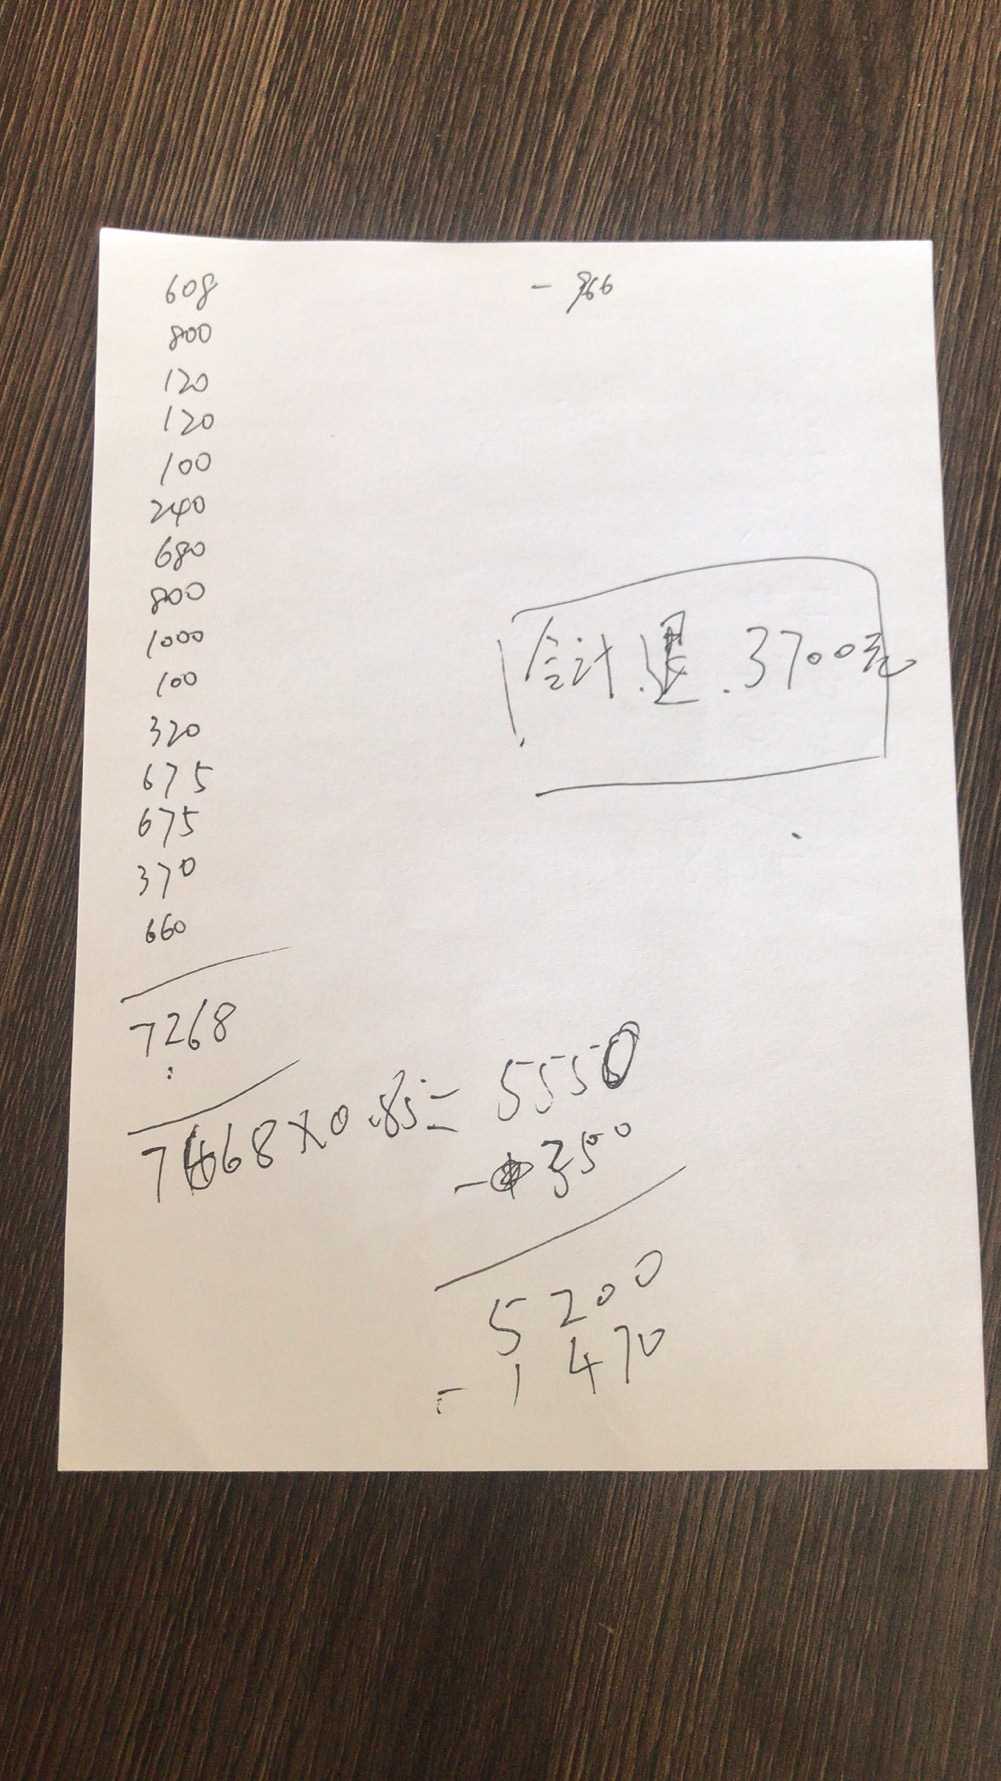 608
800
120
120
100
240
680
800
1000
100
320
675
675
370
660
7268
7668×0.85=5550
-350
5200
-1470
-366
合计.退.3700元